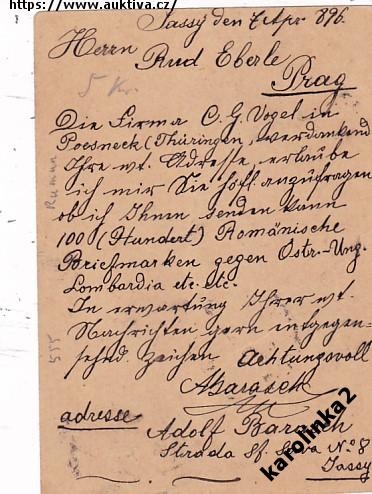 https://www.auktiva.cz/
Jassy den 7 Apr. 896.
Herrn
Rud Eberle
Prag
5 Kr.
Die Firma C. G. Vogel in
Poesneck (Thüringen, verdankend
Ihre wt. Adresse, erlaube
ich mir Sie höfl. anzufragen
ob ich Ihnen senden kann
100 (Hundert) Romänische
Briefmarken gegen Östr.-Ung.
Lombardia etc. etc.
In erwartung Ihrer wt.
Nachrichten gern entgegen-
sehnd. zeichen achtungsvoll
ABarasch
adresse
Adolf Barasch
Strada Sf. Sava No 8
Jassy
karolinka2